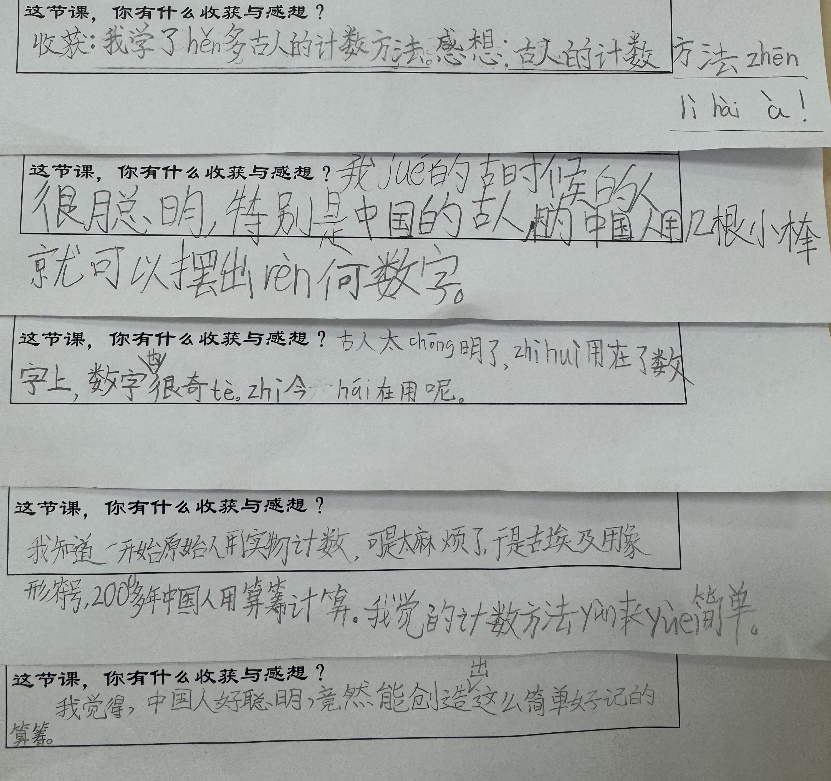 这节课，你有什么收获与感想？
收获：我学了hěn多古人的计数方法。感想：古人的计数方法zhēn
lì hài à！
这节课，你有什么收获与感想？我jué的古时候的人
很聪明，特别是中国的古人，中国人用几根小棒
就可以摆出rèn何数字。
这节课，你有什么收获与感想？古人太chōng明了，zhì huì用在了数
字上，数字也很奇tè。zhì今hái在用呢。
这节课，你有什么收获与感想？
我知道一开始原始人用实物计数，可是太麻烦了，于是古埃及用象
形符号，200多年中国人用算筹计算。我觉的计数方法yùn来yùe简单。
这节课，你有什么收获与感想？
我觉得，中国人好聪明，竟然能创造出这么简单好记的
算筹。